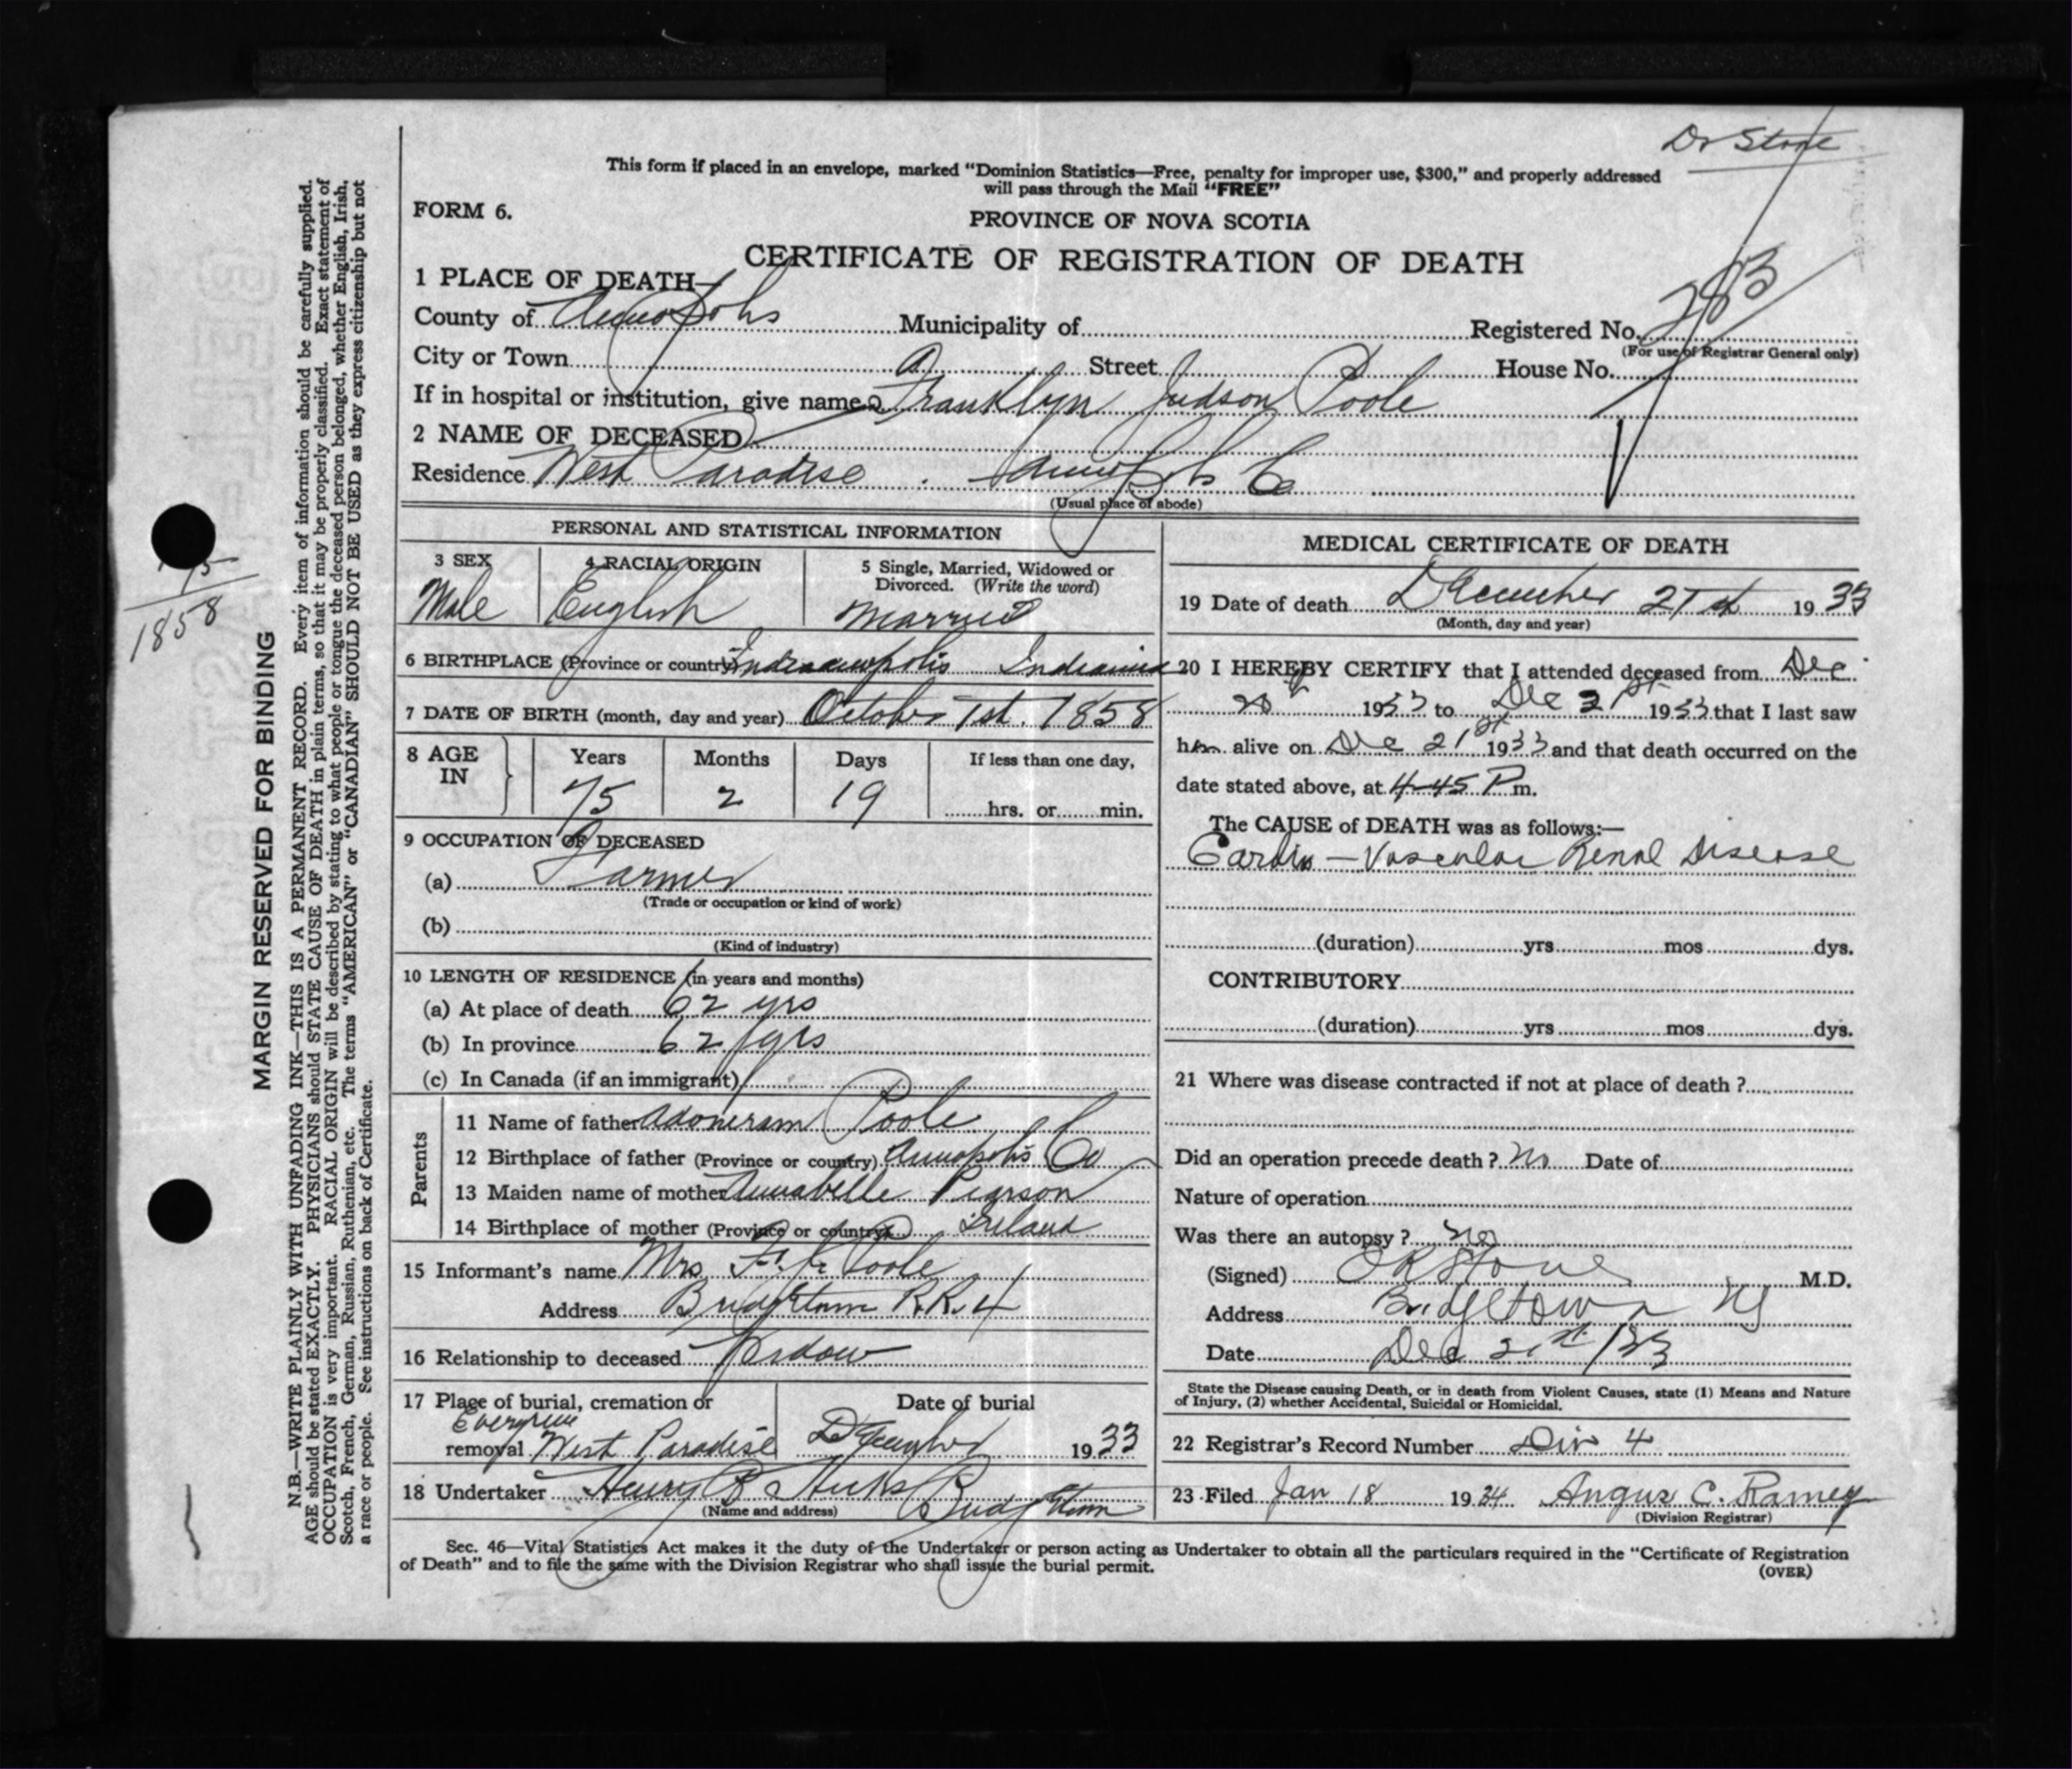 Dr Stone
This form if placed in an envelope, marked "Dominion Statistics—Free, penalty for improper use, $300," and properly addressed
will pass through the Mail "FREE"
FORM 6.
PROVINCE OF NOVA SCOTIA
CERTIFICATE OF REGISTRATION OF DEATH
1 PLACE OF DEATH—
County of Annapolis Municipality of Registered No. 283
(For use of Registrar General only)
City or Town Street House No.
If in hospital or institution, give name Franklyn Judson Poole
2 NAME OF DECEASED
Residence West Paradise Annapolis Co
(Usual place of abode)
PERSONAL AND STATISTICAL INFORMATION
3 SEX 4 RACIAL ORIGIN 5 Single, Married, Widowed or
Divorced. (Write the word)
Male English Married
6 BIRTHPLACE (Province or country) Indianapolis Indiana
7 DATE OF BIRTH (month, day and year) October 1st. 1858
8 AGE IN Years Months Days If less than one day,
75 2 19 hrs. or min.
9 OCCUPATION OF DECEASED
(a) Farmer
(Trade or occupation or kind of work)
(b)
(Kind of industry)
10 LENGTH OF RESIDENCE (in years and months)
(a) At place of death 62 yrs
(b) In province 62 yrs
(c) In Canada (if an immigrant)
Parents
11 Name of father Adoniram Poole
12 Birthplace of father (Province or country) Annapolis Co
13 Maiden name of mother Annabelle Pearson
14 Birthplace of mother (Province or country) Ireland
15 Informant's name Mrs F. J. Poole
Address Bridgetown R.R. 4
16 Relationship to deceased Widow
17 Place of burial, cremation or Date of burial
Evergreen
removal West Paradise December 1933
18 Undertaker Henry B Hicks Bridgetown
(Name and address)
MEDICAL CERTIFICATE OF DEATH
19 Date of death December 21st 1933
(Month, day and year)
20 I HEREBY CERTIFY that I attended deceased from Dec
20th 1933 to Dec 21st 1933 that I last saw
him alive on Dec 21st 1933 and that death occurred on the
date stated above, at 4-45 P m.
The CAUSE of DEATH was as follows:—
Cardio - Vascular Renal Disease
(duration) yrs mos dys.
CONTRIBUTORY
(duration) yrs mos dys.
21 Where was disease contracted if not at place of death ?
Did an operation precede death ? No Date of
Nature of operation
Was there an autopsy ? No
(Signed) Stone M.D.
Address Bridgetown NS
Date Dec 21st /33
State the Disease causing Death, or in death from Violent Causes, state (1) Means and Nature
of Injury, (2) whether Accidental, Suicidal or Homicidal.
22 Registrar's Record Number Div 4
23 Filed Jan 18 1934 Angus C. Ramey
(Division Registrar)
Sec. 46—Vital Statistics Act makes it the duty of the Undertaker or person acting as Undertaker to obtain all the particulars required in the "Certificate of Registration
of Death" and to file the same with the Division Registrar who shall issue the burial permit.
(OVER)
75
1858
MARGIN RESERVED FOR BINDING
N.B.—WRITE PLAINLY WITH UNFADING INK—THIS IS A PERMANENT RECORD. Every item of information should be carefully supplied.
AGE should be stated EXACTLY. PHYSICIANS should STATE CAUSE OF DEATH in plain terms, so that it may be properly classified. Exact statement of
OCCUPATION is very important. RACIAL ORIGIN will be described by stating to what people or tongue the deceased person belonged, whether English, Irish,
Scotch, French, German, Russian, Ruthenian, etc. The terms "AMERICAN" or "CANADIAN" SHOULD NOT BE USED as they express citizenship but not
a race or people. See instructions on back of Certificate.